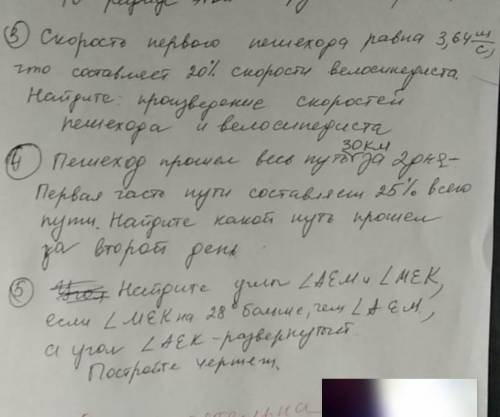 ③ Скорость первого пешехода равна 3,64 м/с,
что составляет 20% скорости велосипедиста.
Найдите: произведение скоростей
пешехода и велосипедиста
30 км
④ Пешеход прошел весь путь за 2 дня-
Первая часть пути составляет 25% всего
пути. Найдите какой путь прошел
за второй день
⑤ Найдите углы ∠AEM и ∠MEK,
если ∠MEK на 28° больше, чем ∠AEM,
а угол ∠AEK - развернутый.
Постройте чертеж.